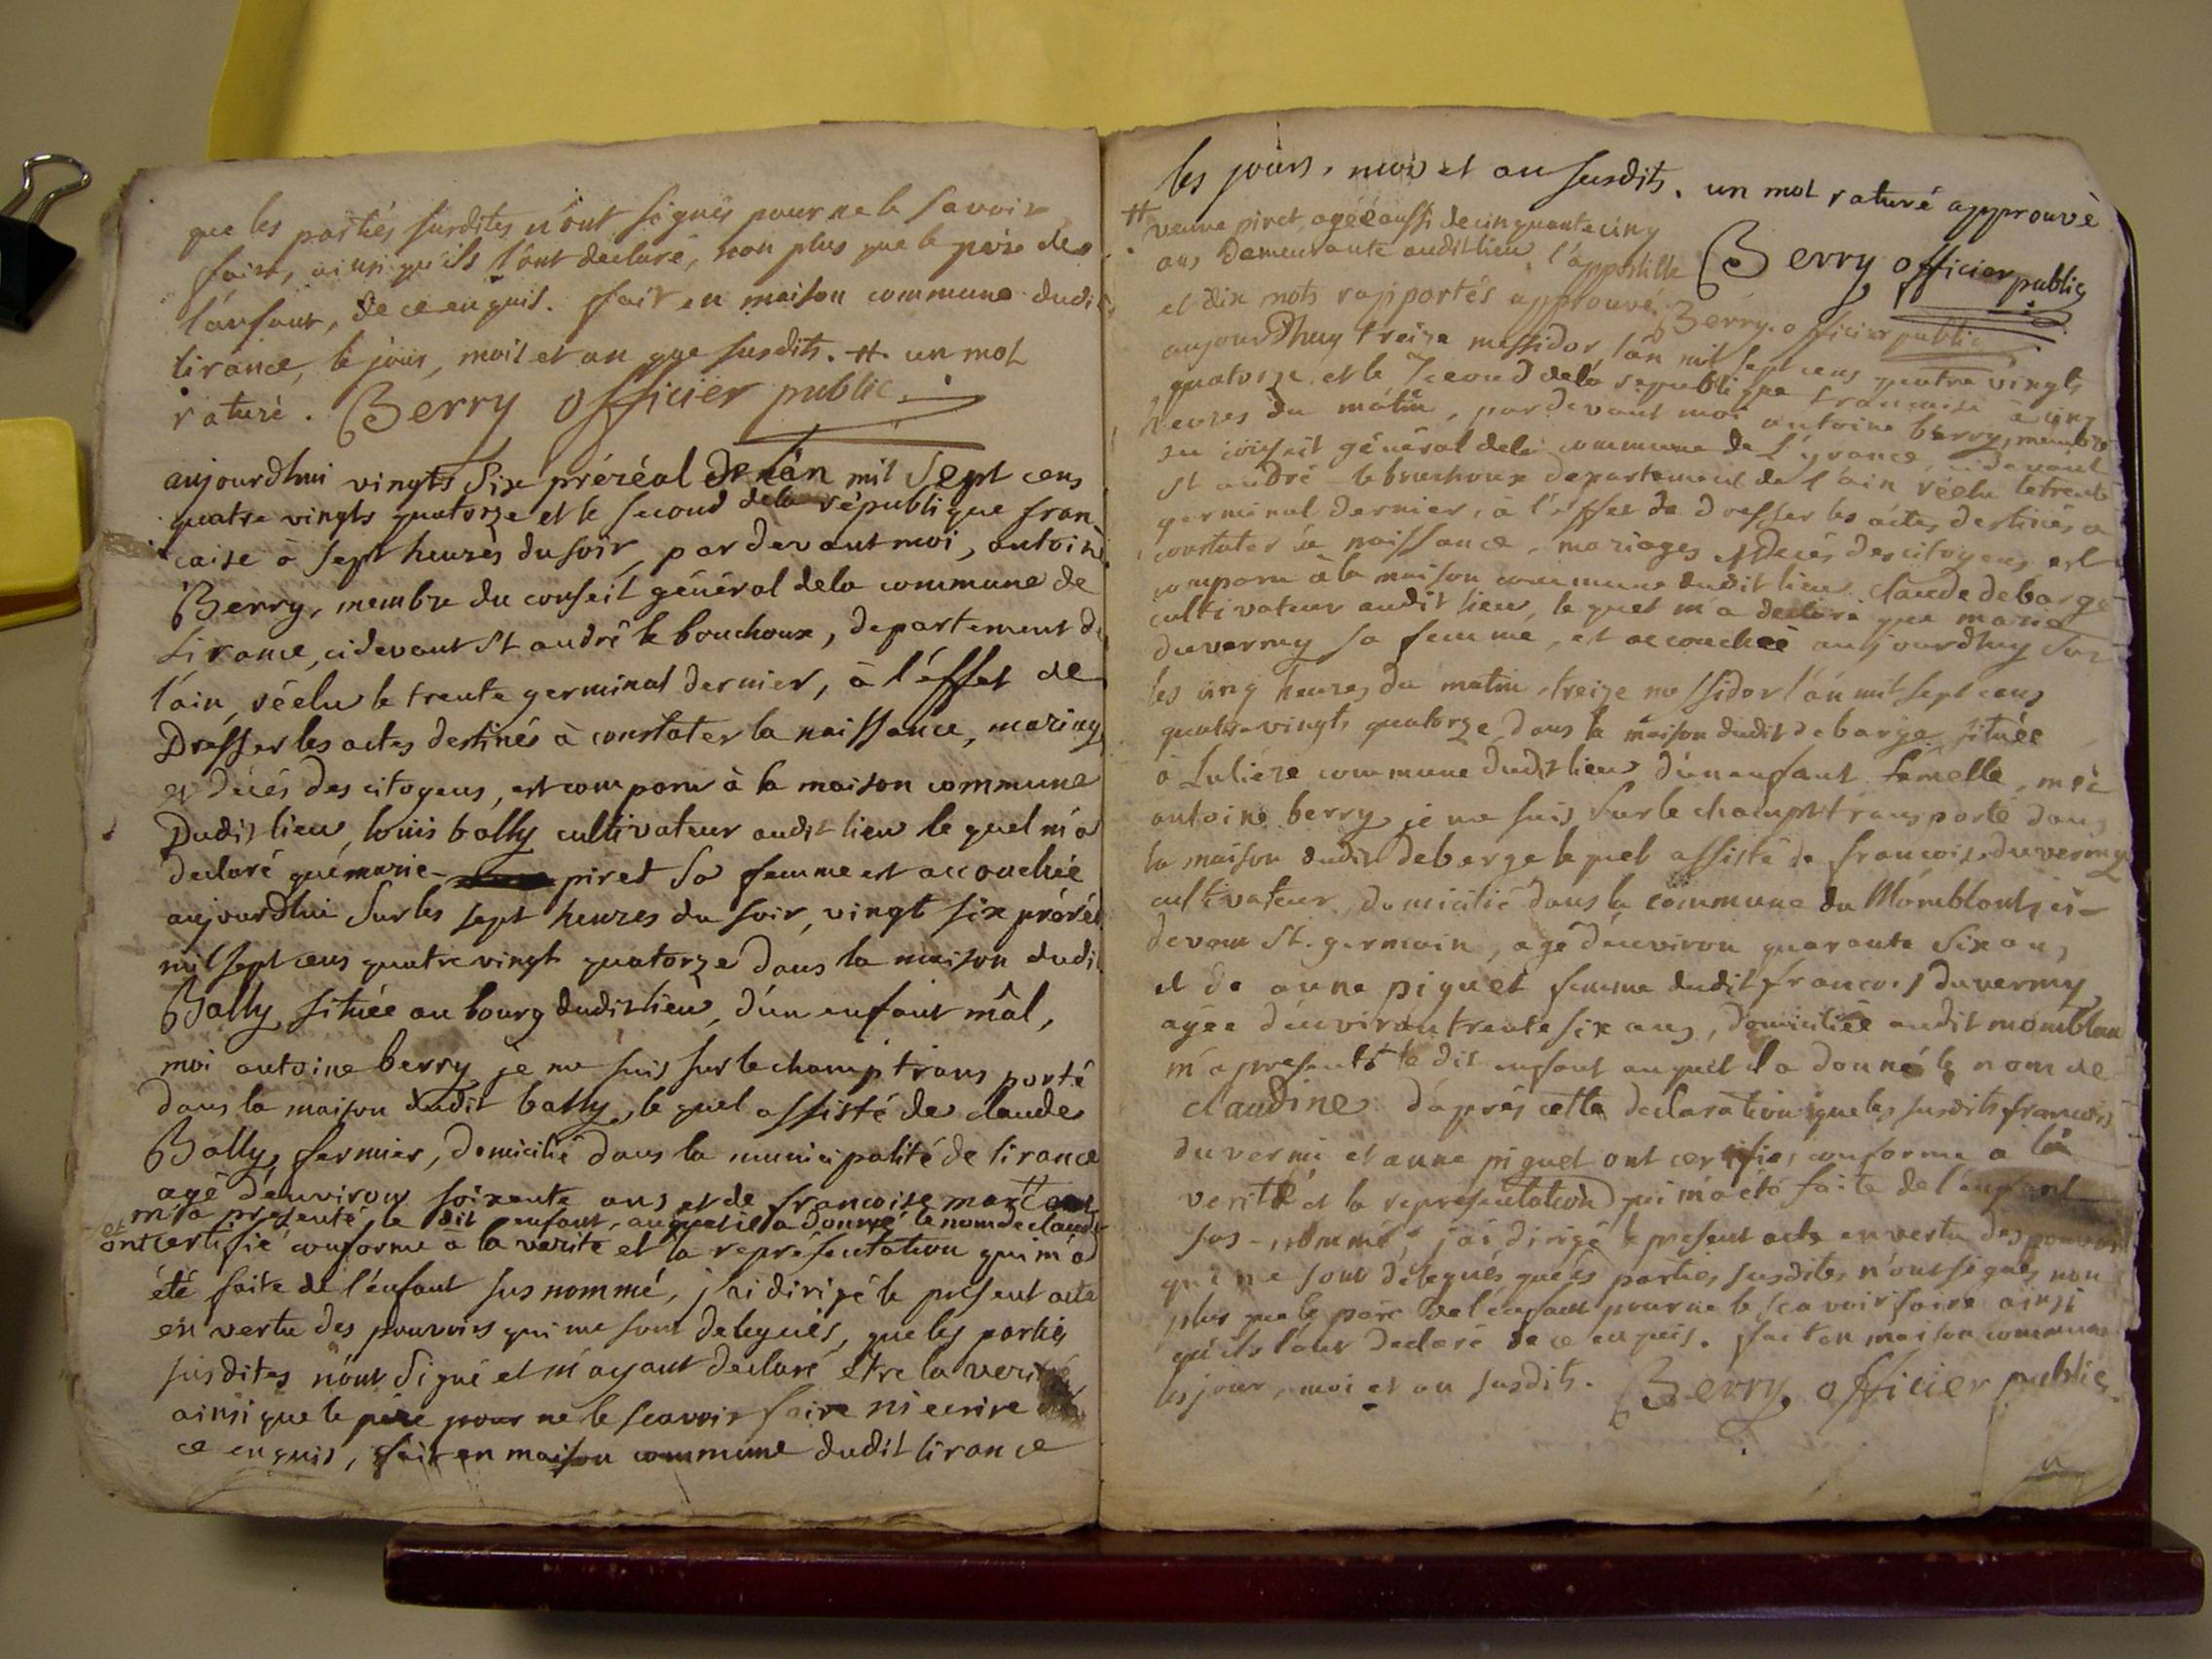 que les partiés susdites n'ont signés pour ne le savoir
faire, ainsi qu'ils l'ont declaré, non plus que le pére de
l'anfant, de ce enquis. fait en maison commune dudit
lirance, le jour, mois et an que susdits. # un mot
raturé. Berry officier public
aujourdhui vingts six préréal de l'an mil sept cens
quatre vingts quatorze et le second dela république fran-
caise à sept heurès du soir, pardevant moi, antoine
Berry, membre du conseil général dela commune de
Lirance, cidevant St andré le bouchoux, departement de
l'ain, réelu le trente germinal dernier, à l'éffet de
Dresser les actes destinés à constater la naissance, mariage
et décés des citoyens, est comparu à la maison commune
Dudit lieu, louis bally cultivateur audit lieu le quel m'a
declaré que marie piret sa femme est accouchée
aujourdhui sur les sept heures du soir, vingt six préréal
mil sept cens quatre vingt quatorze dans la maison dudit
Bally, située au bourg dudit lieu, d'un enfant mâl,
moi antoine berry je me suis sur le champ transporté
dans la maison dudit bally, le quel assisté de claude
Bally, fermier, domicilié dans la municipalité de lirance
agé d'environ soixente ans et de francoise
m'a presenté, le dit enfant, auquel il a donné le nom de claude
et ont certifié conforme a la verite et la représentation qui m'a
été faite de l'énfant sus nommé, j'ai dirigé le present acte
en vertu des pouvoirs qui me sont delegués, que les partiés
susdites n'ont signé et m'ayant declaré être la verité
ainsi que le pére pour ne le scavoir faire ni ecrire de
ce enquis, fait en maison commune dudit lirance
les jours, mois et an susdits. un mot raturé approuvé
# veuve piret, agéé aussi de cinquante cinq
ans Demeurante audit lieu, l'appostille Berry officier public
et dix mots rapportés approuvé. Berry. officier public
aujourdhuy treize messidor, l'an mil sept cens quatre vingts
quatorze et le second dela république francaise à cinq
heures du matin, pardevant moi antoine berry, membre
du conseil général dela commune de Lyrance, cidevant
St andré le bouchoux departement de l'ain réelu le trente
germinal dernier, à l'éffet de dresser les actes destinés a
constater la naissance, mariages et décés des citoyens, est
comparu à la maison commune dudit lieu claude debarge
cultivateur audit lieu, le quel m'a declaré que marie
duvermy sa femme, et accouchéé aujourdhuy sur
les cinq heures du matin, treize messidor l'an mil sept cens
quatre vingts quatorze dans la maison dudit debarge, située
à Luliéze commune dudit lieu d'un enfant femelle, moi
antoine berry je me suis sur le champt transporté dans
la maison dudit debarge le quel assisté de francois duvermy
cultivateur, domicilié dans la commune du Momblant, ci-
devant St. germain, agé d'environ quarante six ans,
et de anne piguet femme dudit francois duvermy
agée d'environ trente six ans, domiciliéé audit momblan
m'a presenté le dit enfant auquel il a donné le nom de
claudine d'aprés cette declaration que les susdits francois
duvermi et anne piguet ont certifiés conforme a la
verité et la representation qui m'a été faite de l'enfant
sus-nommé, j'ai dirigé le present acte en vertu des pouvoirs
qui me sont délegués, que les parties susdites n'ont signés non
plus que le pére de l'enfant pour ne le scavoir faire ainsi
qu'ils l'ont declaré de ce enquis. fait en maison commune
les jour, moi et an susdits. Berry officier public